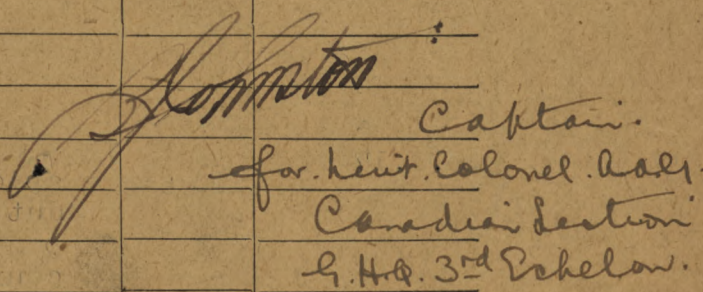 Johnston
Captain.
for. Lieut. Colonel. A.A.G.
Canadian Section
G.H.Q. 3rd Echelon.